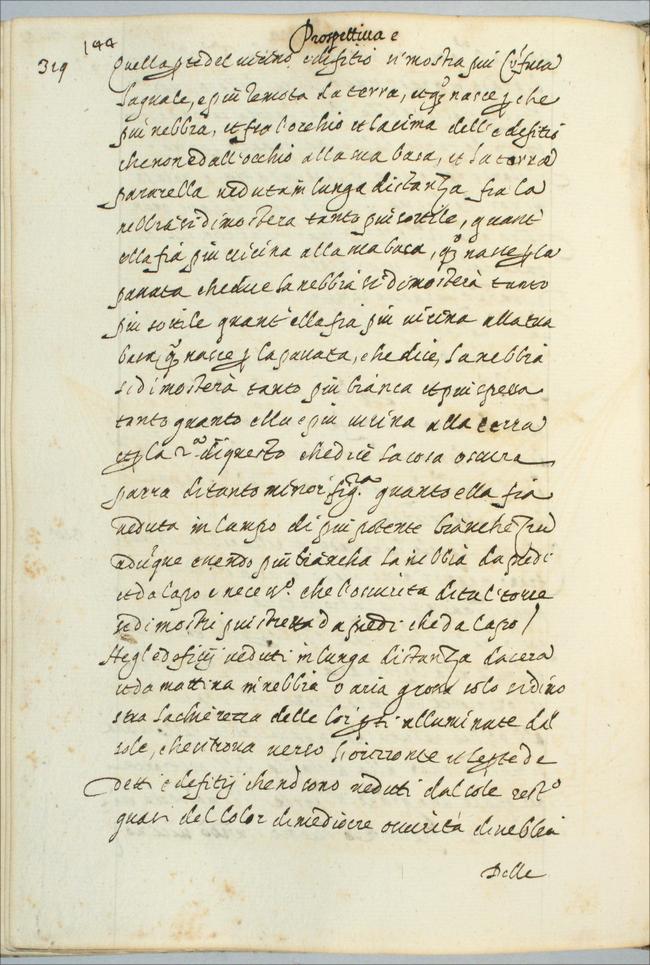 Prospettiua e
144
319
Quella pte del uicino edifitio si mostra piu cōfusa
laquale, e piu remota da terra, et qͦ nasce p che
piu nebbia, et fra l'occhio et la cima dell'edifitio
che non e dall'occhio alla sua basa, et la torre
pararella ueduta in lunga distanza fra la
nebbia si dimostera tanto piu sottile, quant'
ella fia piu uicina alla sua basa, qͦ nasce p la
passata che dice la nebbia si dimosterà tanto
piu sottile quant'ella fia piu uicina alla sua
basa, qͦ nasce p la passata, che dice, la nebbia
si dimosterà tanto piu bianca et piu spessa
tanto quanto ella e piu uicina alla terra
et p la 2ᵃ di questo che dice la cosa oscura
parra di tanto minor figᵃ quanto ella fia
ueduta in campo di piu potente bianchezza
adūque essendo piu biancha la nebbia da piedi
et da capo e necesͦ che l'oscurita di tal torre
si dimostri piu stretta da piedi che da capo /
Negl'edifitij ueduti in lunga distanza da sera
et da mattina in nebbia o aria grossa solo si dimo
stra la chiarezza delle lor pti alluminate dal
sole, che si troua uerso l'orizzonte et le pte de
detti edifitij che nō sono ueduti dal sole restͦ
quasi del color di mediocre oscurità di nebbia
Delle